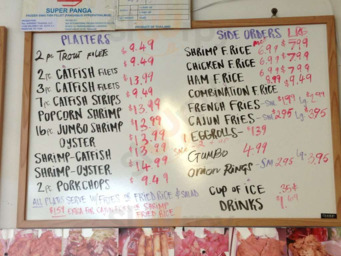 SUPER PANGA
PLATTERS
2 pc TROUT FILETS $9.49
2 pc CATFISH FILETS $9.49
3 pc CATFISH FILETS $13.99
7 pc CATFISH STRIPS $9.49
POPCORN SHRIMP $13.99
16 pc JUMBO SHRIMP $13.99
OYSTER $13.99
SHRIMP-CATFISH $13.99
SHRIMP-OYSTER $14.99
2 pc PORKCHOPS $9.49
ALL PLATES SERVE W/ FRIES OR FRIED RICE & SALAD
SIDE ORDERS LG
SHRIMP F.RICE $7.99
CHICKEN F.RICE $7.99
HAM F.RICE $7.99
COMBINATION F.RICE $9.49
FRENCH FRIES - SM $1.99
CAJUN FRIES - SM 2.95 Lg 3.95
1 EGGROLLS - $1.39
GUMBO 4.99
ONION RINGS - SM 2.95 Lg 3.95
CUP OF ICE .35¢
DRINKS